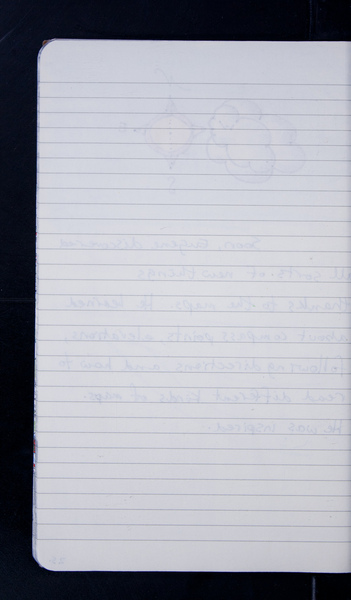 Soon, Eugene discovered
all sorts of new things
thanks to the maps. He learned
about compass points, elevations,
following directions, and how to
read different kinds of maps.
He was inspired.